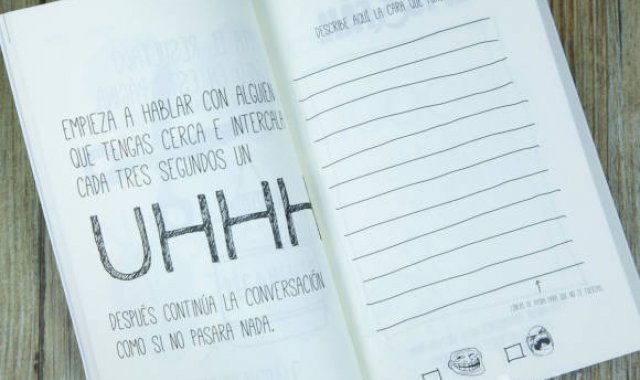 EMPIEZA A HABLAR CON ALGUIEN
QUE TENGAS CERCA E INTERCALA
CADA TRES SEGUNDOS UN
UHHH
DESPUÉS CONTINÚA LA CONVERSACIÓN
COMO SI NO PASARA NADA.
DESCRIBE AQUÍ LA CARA QUE
LÍNEAS DE AYUDA PARA QUE NO TE TUERZAS